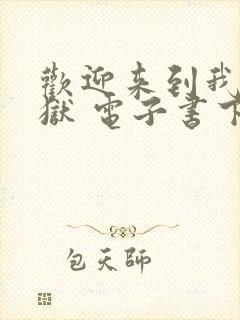 歡迎来到我
獄 電子書下
包天師